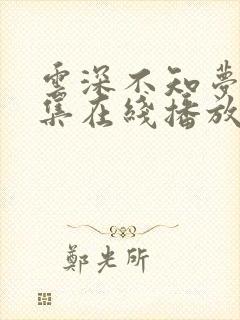 雲深不知夢
集在綫播放
鄭光所